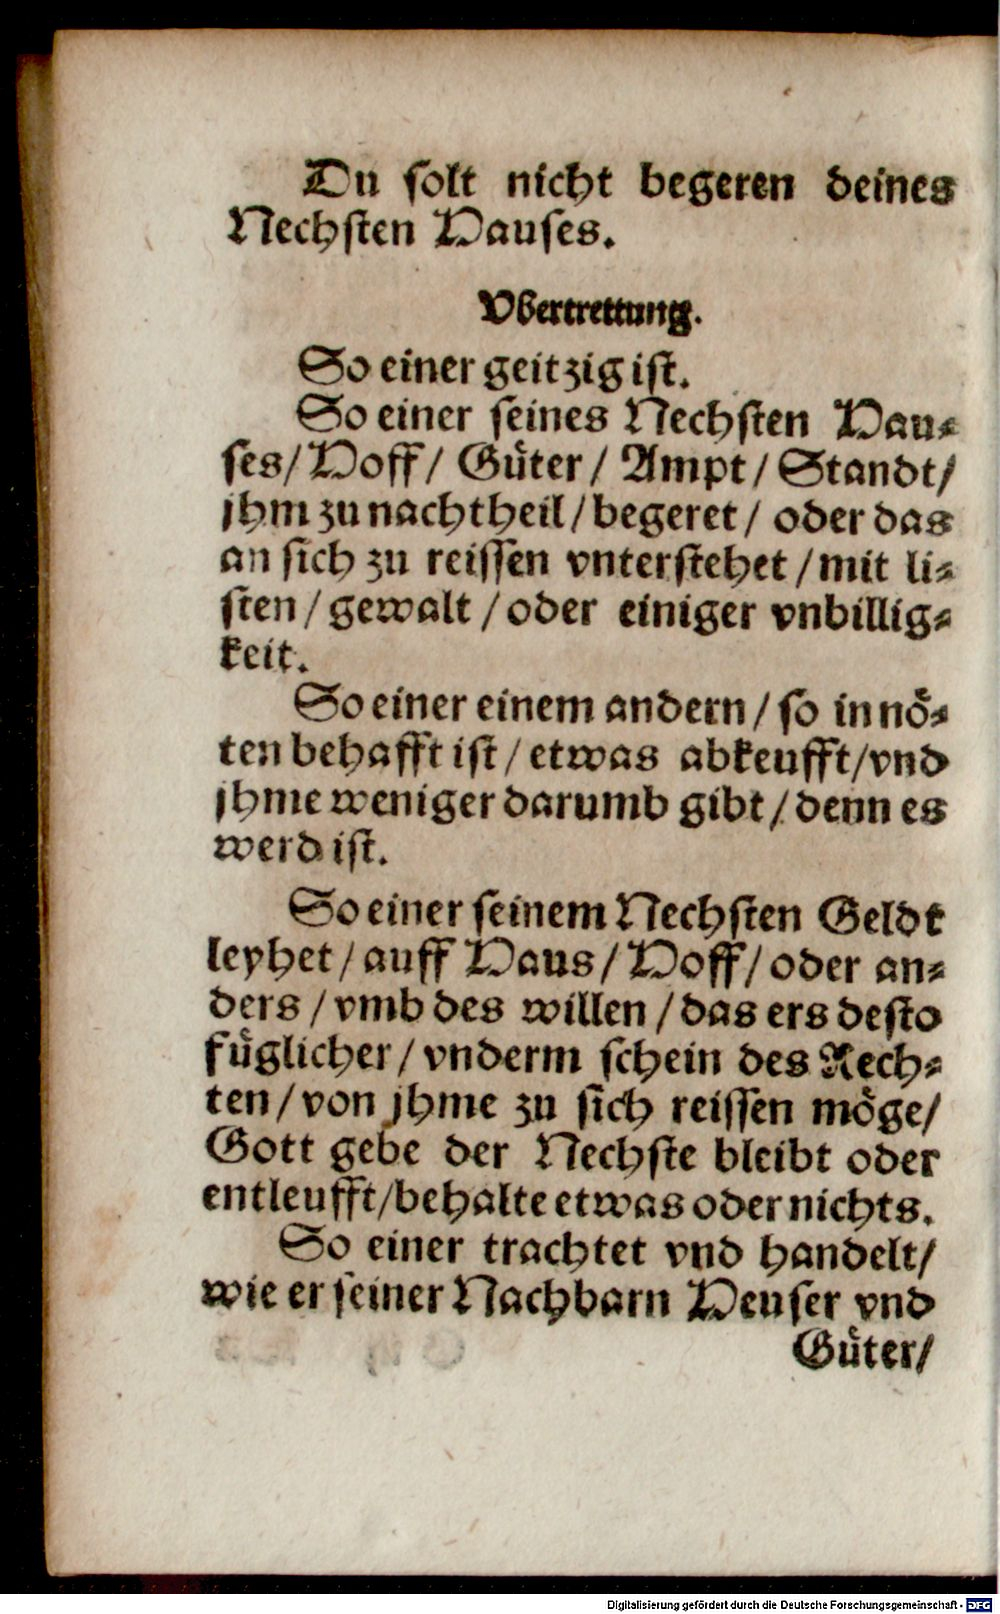 Du solt nicht begeren deines
Nechsten Hauses.
Vbertrettung.
So einer geitzig ist.
So einer seines Nechsten Hau⸗
ses/ Hoff/ Güter/ Ampt/ Standt/
jhm zu nachtheil/ begeret/ oder das
an sich zu reissen vnterstehet/ mit li⸗
sten/ gewalt/ oder einiger vnbillig⸗
keit.
So einer einem andern/ so in nö⸗
ten behafft ist/ etwas abkeufft/ vnd
jhme weniger darumb gibt/ denn es
werd ist.
So einer seinem Nechsten Geldt
leyhet/ auff Haus/ Hoff/ oder an⸗
ders/ vmb des willen/ das ers desto
füglicher/ vnderm schein des Rech⸗
ten/ von jhme zu sich reissen möge/
Gott gebe der Nechste bleibt oder
entleufft/ behalte etwas oder nichts.
So einer trachtet vnd handelt/
wie er seiner Nachbarn Heuser vnd
Güter/
Digitalisierung gefördert durch die Deutsche Forschungsgemeinschaft - DFG